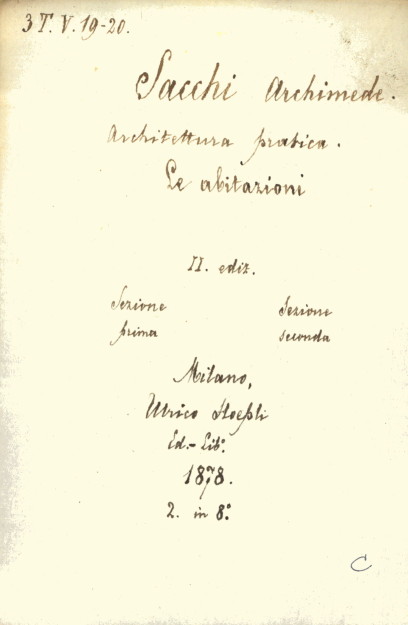 3 T. V. 19-20.
Sacchi Archimede.
Architettura pratica.
Le abitazioni
II. ediz.
Sezione Sezione
prima seconda
Milano,
Ulrico Hoepli
Ed.-Lib.º
1878.
2. in 8.º
C